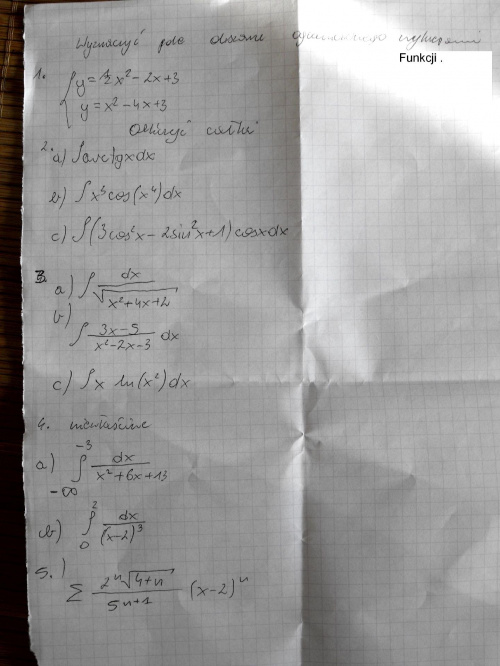 Wyznaczyć pole obszaru ograniczonego wykresami
Funkcji .
1. { y = 1/2 x² - 2x + 3
y = x² - 4x + 3
Obliczyć całki
2. a) ∫ arctgx dx
b) ∫ x³ cos(x⁴) dx
c) ∫ (3cos²x - 2sin²x + 1) cosx dx
3. a) ∫ dx / √(x² + 4x + 2)
b) ∫ (3x - 5) / (x² - 2x - 3) dx
c) ∫ x ln(x²) dx
4. niewłaściwe
a) ∫_{-∞}^{-3} dx / (x² + 6x + 13)
b) ∫_{0}^{2} dx / (x-2)³
5. ) Σ (2ⁿ √(4+n)) / (5n+1) (x-2)ⁿ